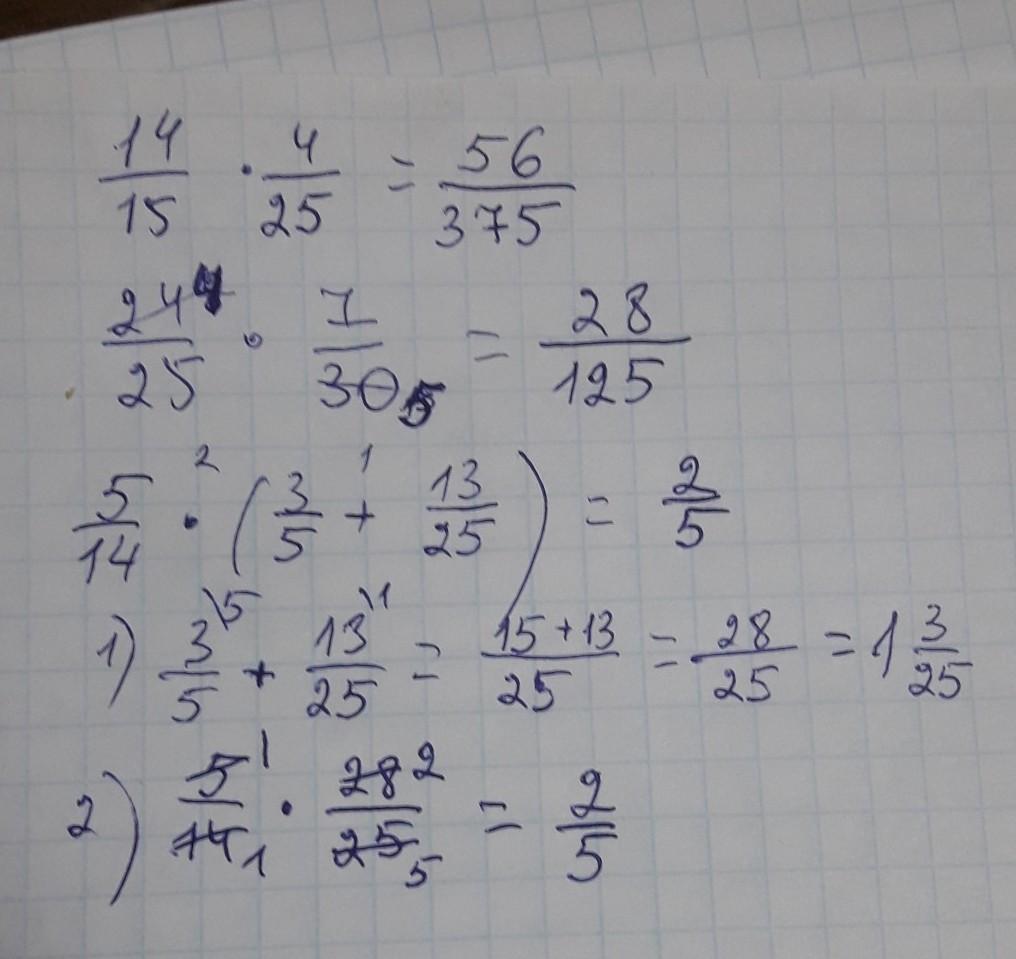 14/15 · 4/25 = 56/375
24 4/25 · 7/30 5 = 28/125
5/14 ·² (3/5 +¹ 13/25) = 2/5
1) 3\5/5 + 13\1/25 = 15+13/25 = 28/25 = 1 3/25
2) 5 1/14 1 · 28 2/25 5 = 2/5